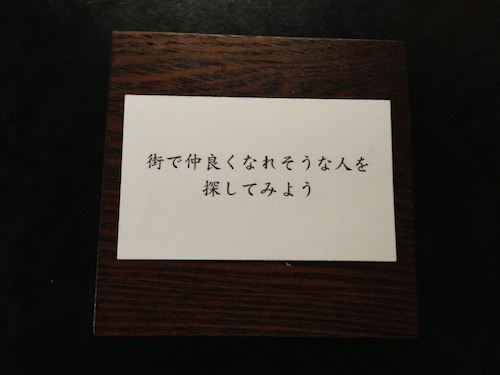 街で仲良くなれそうな人を
探してみよう